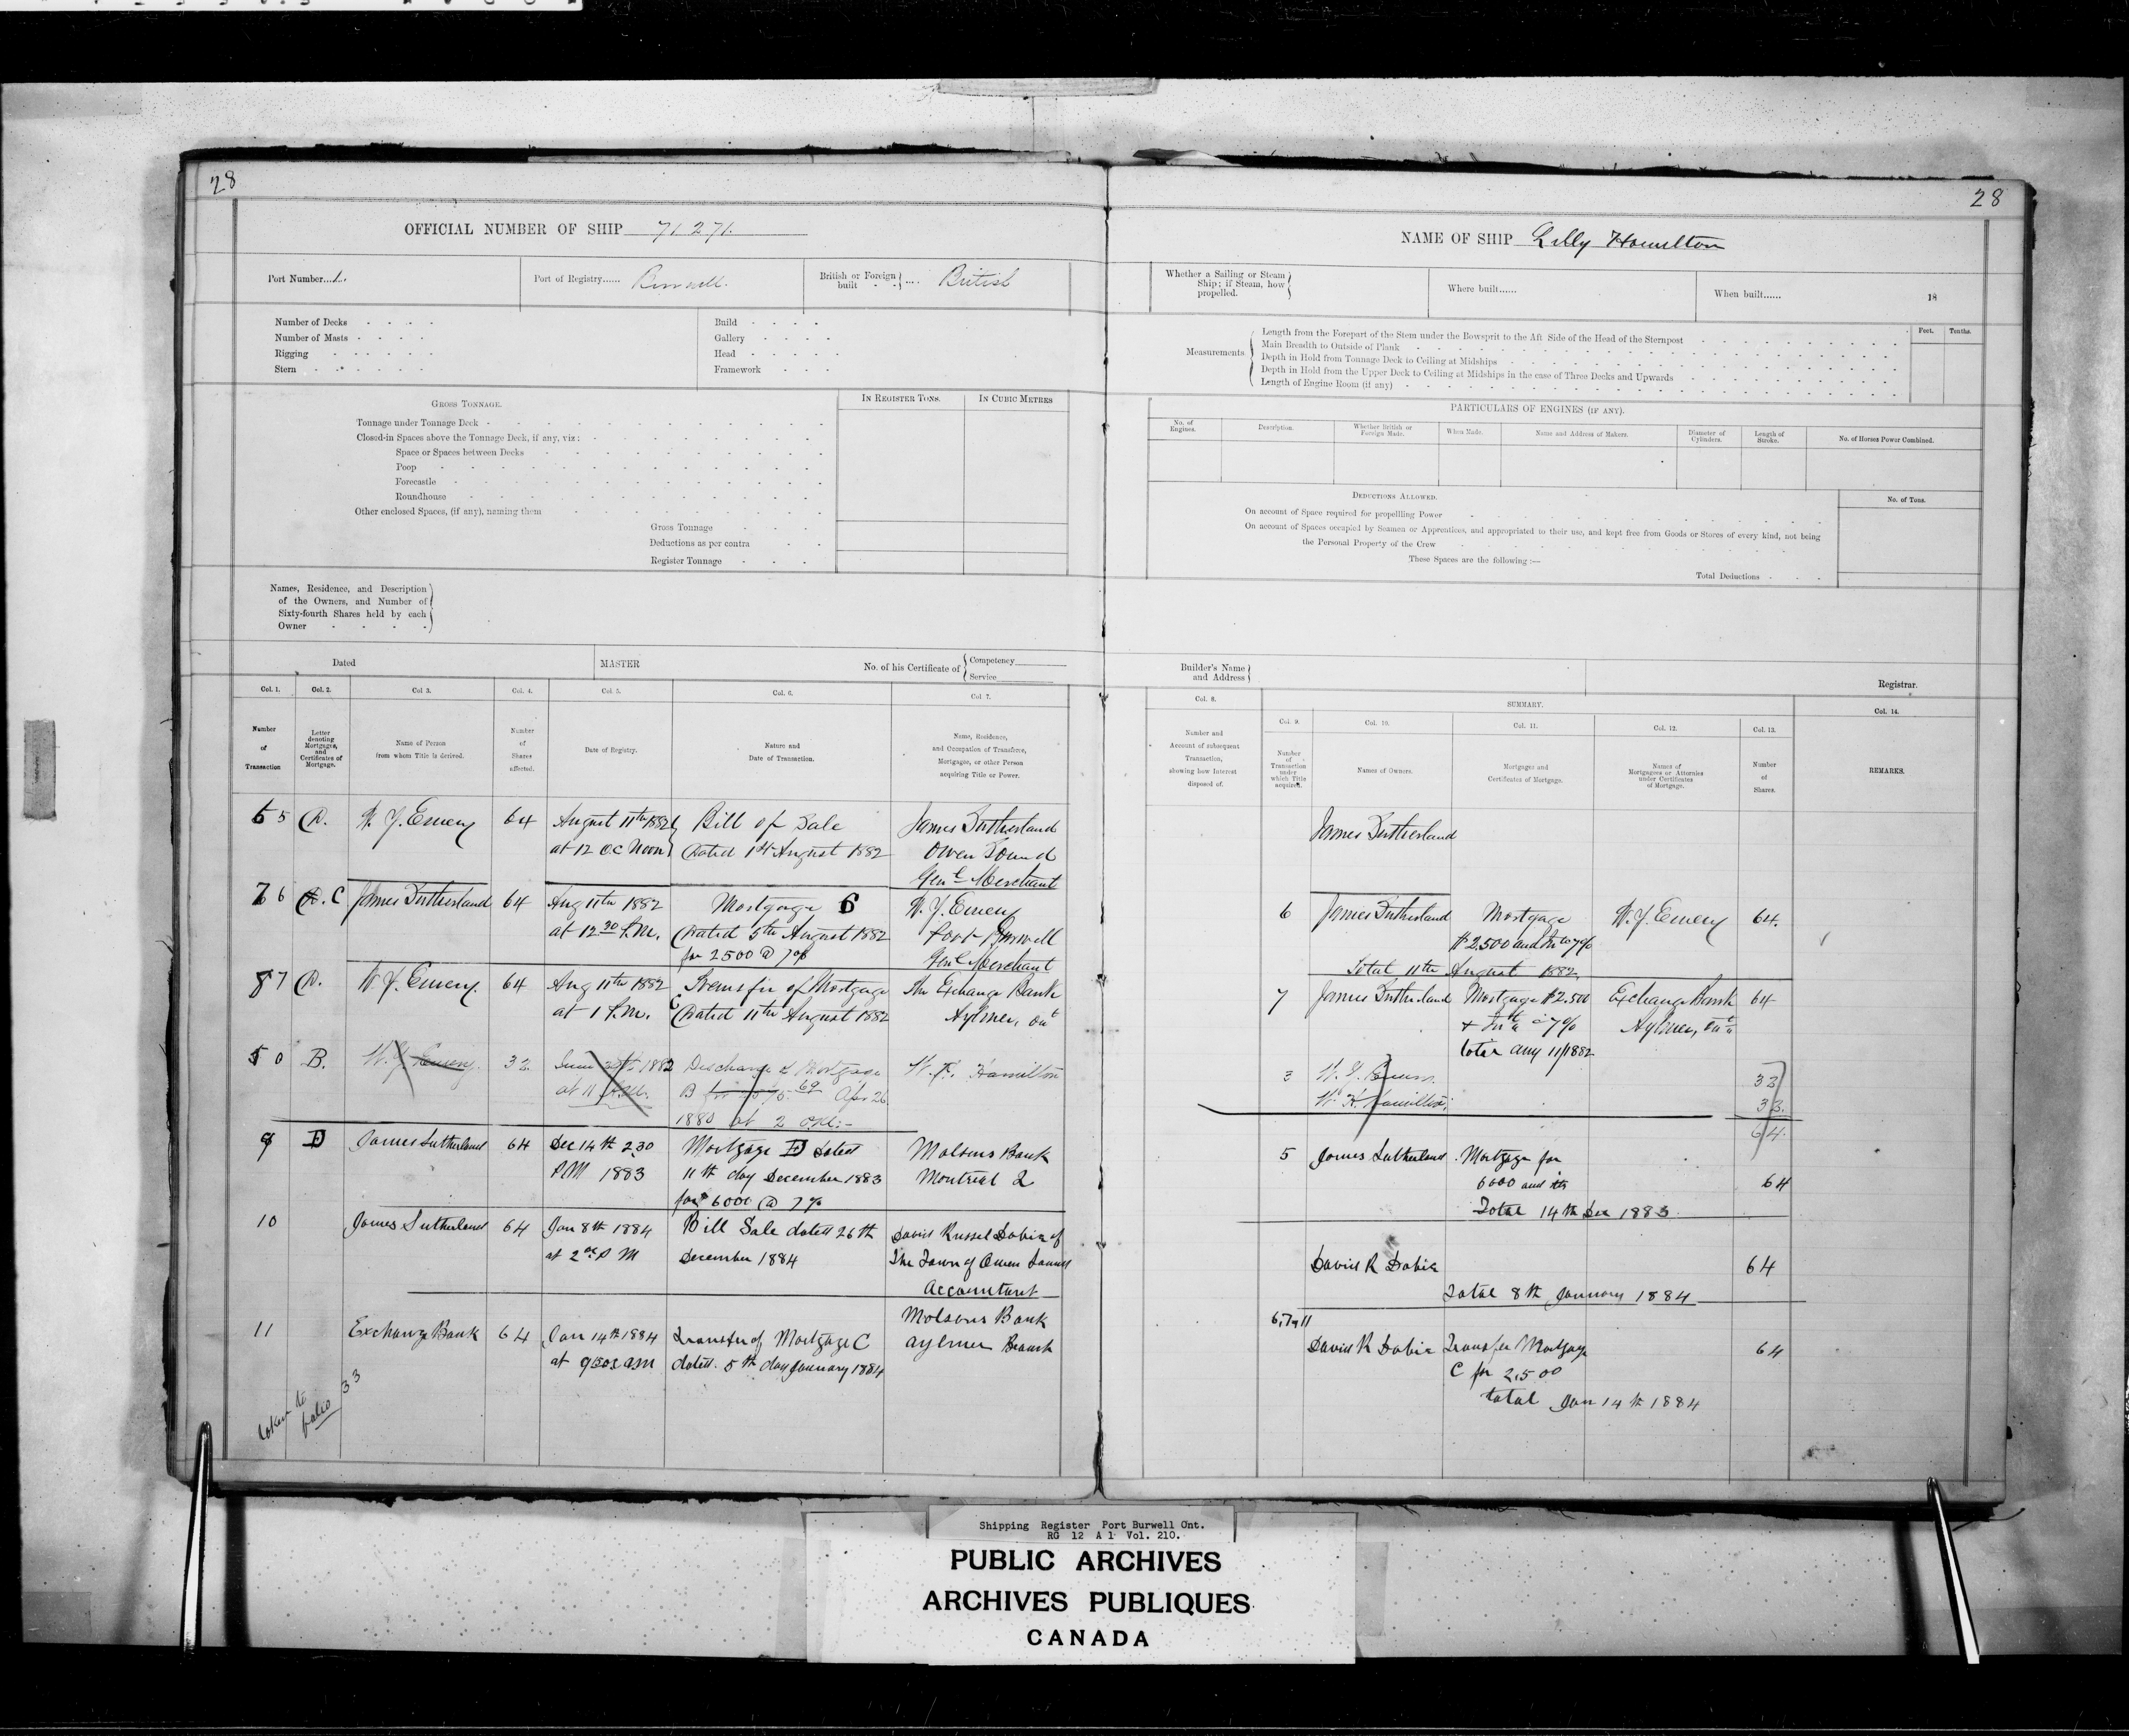 28
OFFICIAL NUMBER OF SHIP 71.271.
Port Number...1.
Port of Registry...... Burwell.
British or Foreign built .... British
Number of Decks
Number of Masts
Rigging
Stern
Build
Gallery
Head
Framework
GROSS TONNAGE.
IN REGISTER TONS.
IN CUBIC METRES
Tonnage under Tonnage Deck
Closed-in Spaces above the Tonnage Deck, if any, viz:
Space or Spaces between Decks
Poop
Forecastle
Roundhouse
Other enclosed Spaces, (if any), naming them
Gross Tonnage
Deductions as per contra
Register Tonnage
Names, Residence, and Description
of the Owners, and Number of
Sixty-fourth Shares held by each
Owner
Dated
MASTER
No. of his Certificate of
Competency
Service
Col. 1.
Col. 2.
Col 3.
Col. 4.
Col. 5.
Col. 6.
Col 7.
Number
of
Transaction
Letter
denoting
Mortgages,
and
Certificates of
Mortgage.
Name of Person
from whom Title is derived.
Number
of
Shares
affected.
Date of Registry.
Nature and
Date of Transaction.
Name, Residence,
and Occupation of Transferee,
Mortgagee, or other Person
acquiring Title or Power.
5 W. J. Emery 64 August 11th 1882 Bill of Sale James Sutherland
at 12 o.c Noon Dated 1st August 1882 Owen Sound
Genl Merchant
6 C James Sutherland 64 Aug 11th 1882 Mortgage C W. J. Emery
at 12.30 P.M. Dated 5th August 1882 Port Burwell
for 2500 @ 7% Genl Merchant
7 W. J. Emery. 64 Aug 11th 1882 Transfer of Mortgage The Exchange Bank
at 1 P.M. C Dated 11th August 1882 Aylmer, Ont
B. W. J. Emery. 32 1882 Discharge of Mortgage Hamilton
at 11 B Apr 26
1880 at 2
9 D James Sutherland 64 Dec 14th 2.30 Mortgage D dated Molsons Bank
P.M 1883 11th day December 1883 Montreal Q
for $ 6000 @ 7%
10 James Sutherland 64 Jan 8th 1884 Bill Sale dated 26th David Russel Dobie of
at 2 P M December 1884 The Town of Owen Sound
Accountant
11 Exchange Bank 64 Jan 14th 1884 Transfer of Mortgage C Molsons Bank
at a.m dated. 5th day January 1884 Aylmer Branch
taken to
folio 33
28
NAME OF SHIP Lilly Hamilton
Whether a Sailing or Steam
Ship; if Steam, how
propelled.
Where built......
When built......
18
Measurements
Feet.
Tenths.
Length from the Forepart of the Stem under the Bowsprit to the Aft Side of the Head of the Sternpost
Main Breadth to Outside of Plank
Depth in Hold from Tonnage Deck to Ceiling at Midships
Depth in Hold from the Upper Deck to Ceiling at Midships in the case of Three Decks and Upwards
Length of Engine Room (if any)
PARTICULARS OF ENGINES (IF ANY).
No. of
Engines.
Description.
Whether British or
Foreign Made.
When Made.
Name and Address of Makers.
Diameter of
Cylinders.
Length of
Stroke.
No. of Horses Power Combined.
DEDUCTIONS ALLOWED.
No. of Tons.
On account of Space required for propellling Power
On account of Spaces occupied by Seamen or Apprentices, and appropriated to their use, and kept free from Goods or Stores of every kind, not being
the Personal Property of the Crew
These Spaces are the following :—
Total Deductions
Builder's Name
and Address
Registrar.
Col. 8.
SUMMARY.
Col. 14.
Col. 9.
Col. 10.
Col. 11.
Col. 12.
Col. 13.
Number and
Account of subsequent
Transaction,
showing how Interest
disposed of.
Number
of
Transaction
under
which Title
acquired.
Names of Owners.
Mortgages and
Certificates of Mortgage.
Names of
Mortgagees or Attornies
under Certificates
of Mortgage.
Number
of
Shares.
REMARKS.
James Sutherland
6 James Sutherland Mortgage W. J. Emery 64.
$2.500 and 7%
Total 11th August 1882
7 James Sutherland Mortgage $2.500 Exchange Bank 64
7% Aylmer, Ont
Total Aug 11/1882
32
W. Hamilton 32.
64.
5 James Sutherland Mortgage for
6000 and 64
Total 14th Dec 1883
David R Dobie 64
Total 8th January 1884
6, 7 11
David R Dobie Transfer Mortgage 64
C for 2,500
total Jan 14th 1884
Shipping Register Port Burwell Ont.
RG 12 A 1 Vol. 210.
PUBLIC ARCHIVES
ARCHIVES PUBLIQUES
CANADA